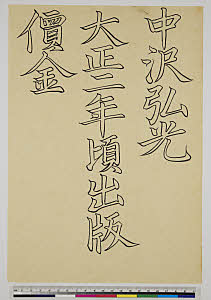 中沢弘光
大正二年頃出版
價金